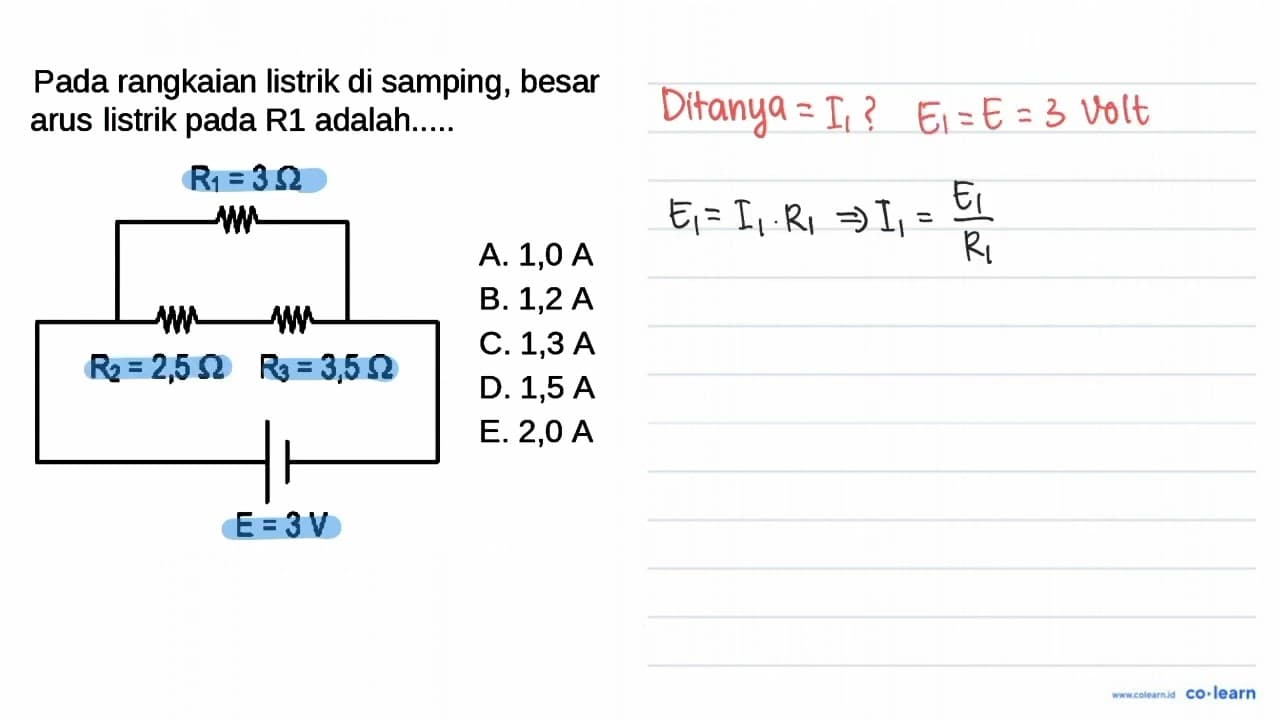 Pada rangkaian listrik di samping, besar
arus listrik pada R1 adalah.....
R₁ = 3 Ω
R₂ = 2,5 Ω
R₃ = 3,5 Ω
E = 3 V
A. 1,0 A
B. 1,2 A
C. 1,3 A
D. 1,5 A
E. 2,0 A
Ditanya = I₁ ? E₁ = E = 3 Volt
E₁ = I₁ . R₁ ⇒ I₁ = E₁/R₁
www.colearn.id co·learn